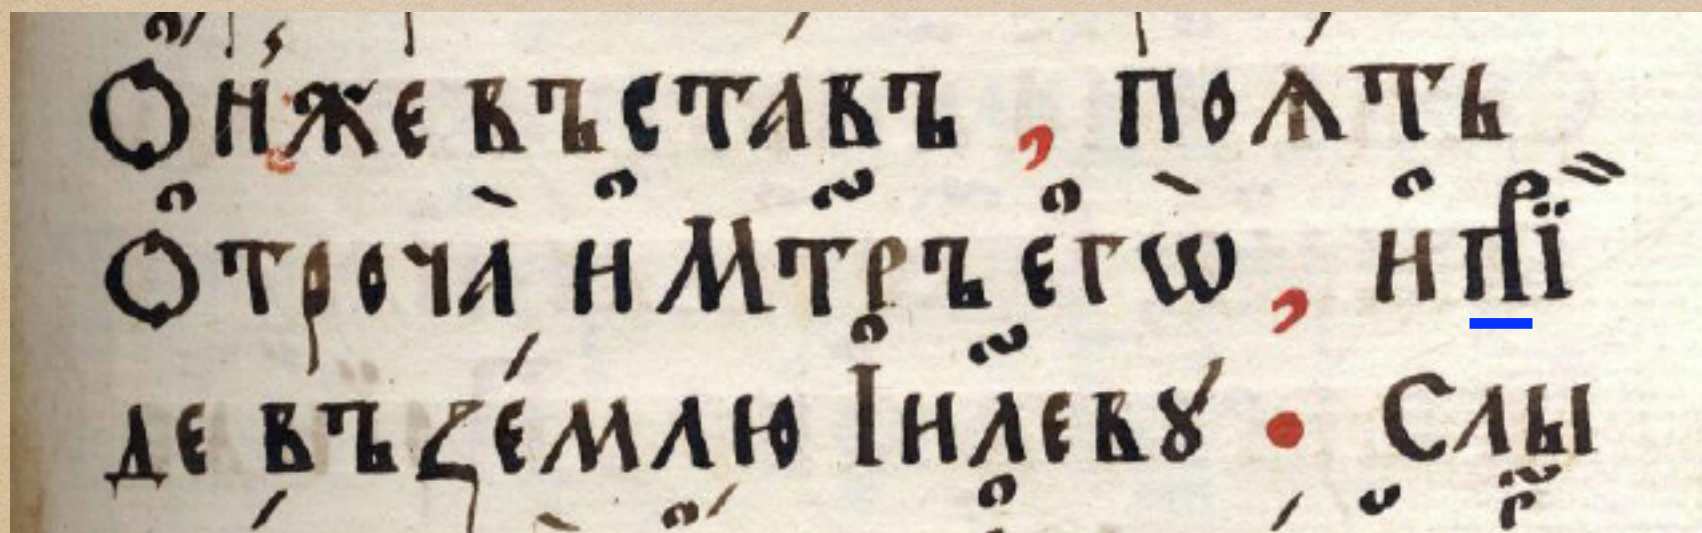 Ѻ҆́нже въста́въ, поѧ́тъ
Ѻ҆троча̀ и҆ Мт҃ръ є҆гѡ̀, и҆ прїи
де въ ꙁе́млю І҆и҃леву́. Слы